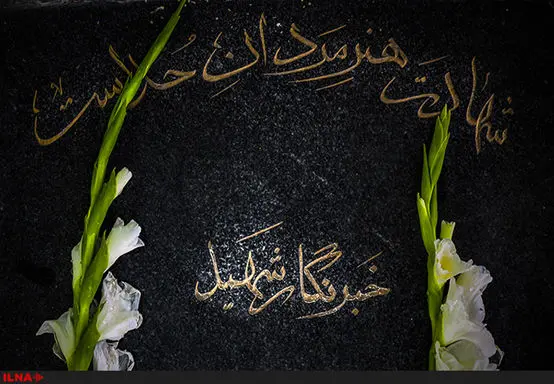 شهادت هنر مردان خداست
خبرنگار شهید
ILNA